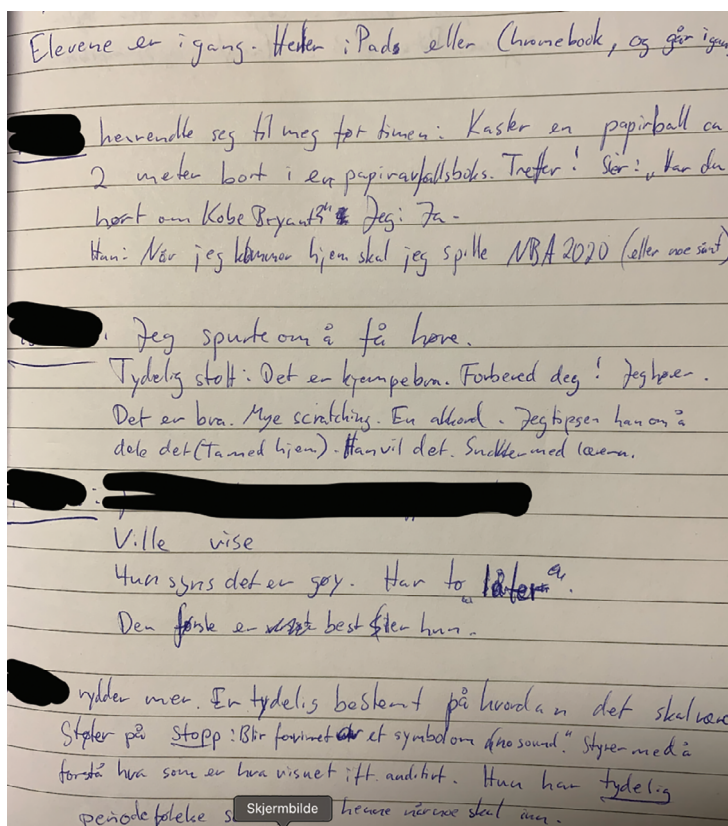 Elevene er i gang. Henter iPads eller Chromebook, og går igang
henvendte seg til meg før timen: Kaster en papirball ca
2 meter bort i en papiravfallsboks. Treffer! Sier: "Har du
hørt om Kobe Bryant?" Jeg: Ja.
Han: Når jeg kommer hjem skal jeg spille NBA 2020 (eller noe sånt)
Jeg spurte om å få høre.
Tydelig stolt: Det er kjempebra. Forbered deg! Jeg hører.
Det er bra. Mye scratching. En akkord. Jeg tipser han om å
dele det (Ta med hjem). Han vil det. Snakker med læreren.
Ville vise
Hun syns det er gøy. Har to låter
Den første er best sier hun.
rydder mer. Er tydelig bestemt på hvordan det skal være
Støter på stopp: Blir forvirret av et symbol om "no sound." Styrer med å
forstå hva som er hva visuelt ift. auditivt. Hun har tydelig
periodefølelse henne når noe skal inn.
Skjermbilde